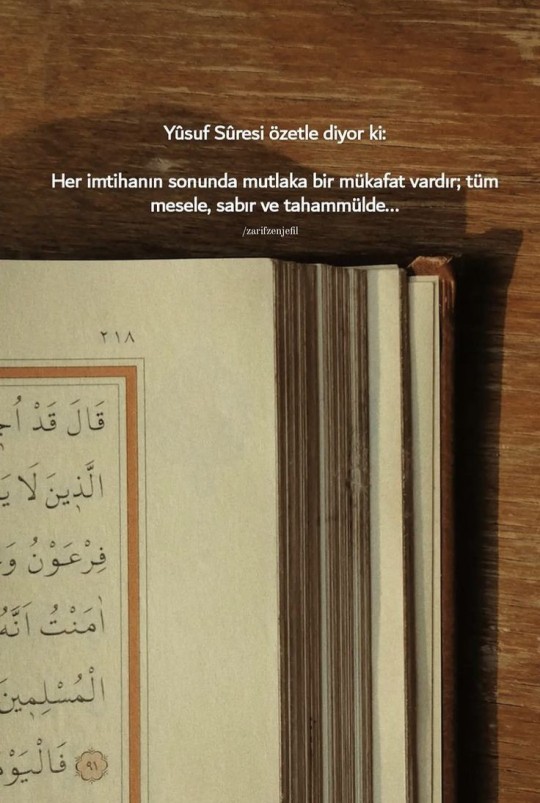 Yûsuf Sûresi özetle diyor ki:
Her imtihanın sonunda mutlaka bir mükafat vardır; tüm
mesele, sabır ve tahammülde...
/zarifzenjefil
٢١٨
قَالَ قَدْ
الَّذ۪ينَ لَا
فِرْعَوْنُ
اٰمَنْتُ اَنَّهُ
الْمُسْلِم۪ينَ
٩١ فَالْيَوْمَ